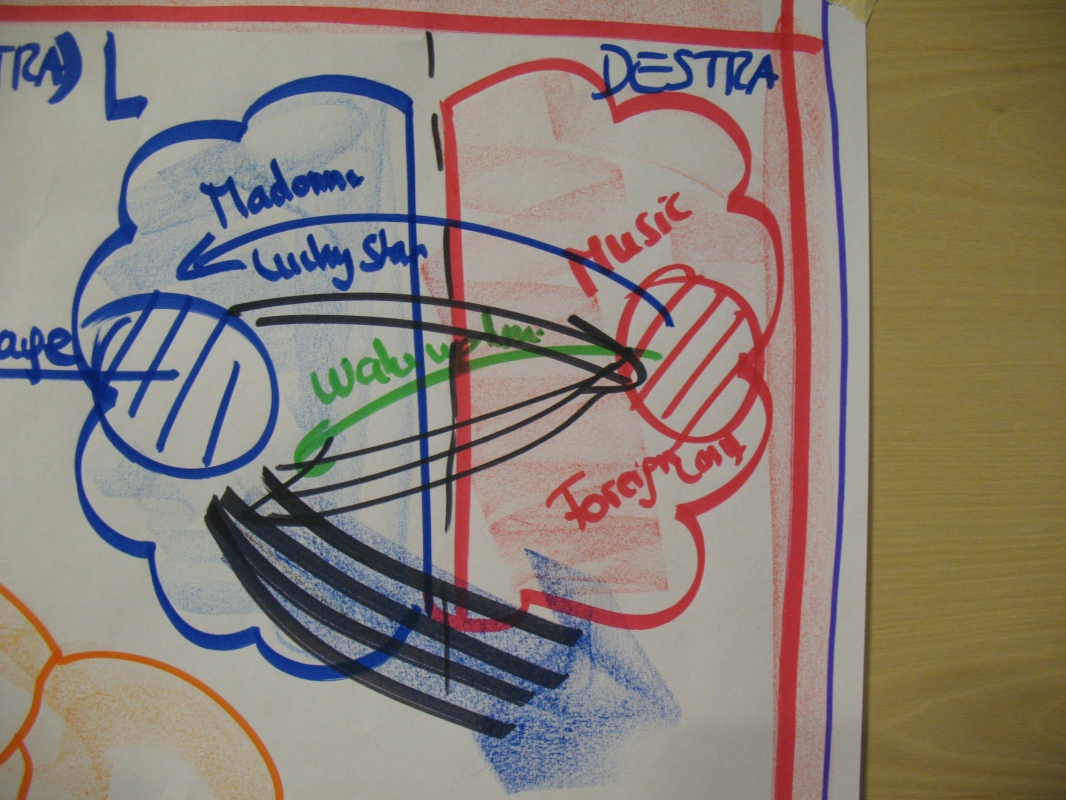 TRA) L
DESTRA
Madonna
Lucky Star
Music
Wake up
Foreign